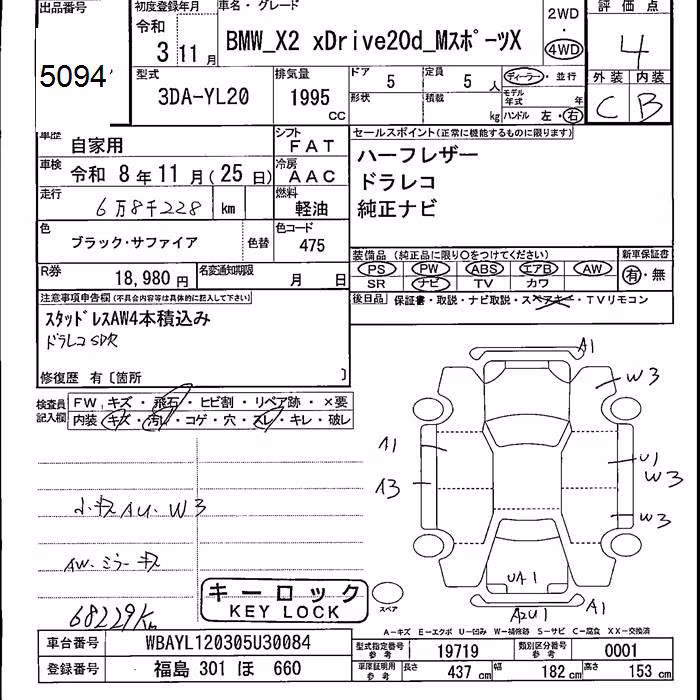 出品番号 初度登録年月 車名・グレード 2WD 評価点
5094 令和 3 年 11 月 BMW_X2 xDrive20d_MスポーツX 4WD 4
型式 排気量 ドア 5 定員 5 人 ディーラー・並行 外装 内装
3DA-YL20 1995 CC 形状 積載 kg モデル年式 年 C B
ハンドル 左・右
車歴 自家用 シフト FAT セールスポイント(正常に機能するものに限ります)
車検 令和 8 年 11 月 ( 25 日) 冷房 AAC ハーフレザー
走行 6万8千228 km 燃料 軽油 ドラレコ
純正ナビ
色 ブラック・サファイア 色替 色コード 475
装備品 (純正品に限り〇をつけてください) 新車保証書
PS PW ABS エアB AW 有・無
R券 18,980 円 名変通知期限 月 日 SR ナビ TV カワ
注意事項申告欄(不具合内容等は具体的に記入して下さい) 後日品 保証書・取説・ナビ取説・スペアキー・TVリモコン
スタッドレスAW4本積込み
ドラレコSD欠
修復歴 有〔箇所 〕
検査員記入欄 FW キズ・飛石・ヒビ割・リペア跡・×要
内装 キズ・汚れ・コゲ・穴・スレ・キレ・破レ
A1
W3
A1
U1
W3
A3
W3
小キズAU・W3
AW・ミラーキズ
UA1
A1
A2U1
キーロック
KEY LOCK
スペア
68229Km
A-キズ E-エクボ U-凹み W-補修跡 S-サビ C-腐食 XX-交換済
車台番号 WBAYL120305U30084 型式指定番号 参考 19719 類別区分番号 参考 0001
登録番号 福島 301 ほ 660 車庫証明用 参考 長さ 437 cm 幅 182 cm 高さ 153 cm